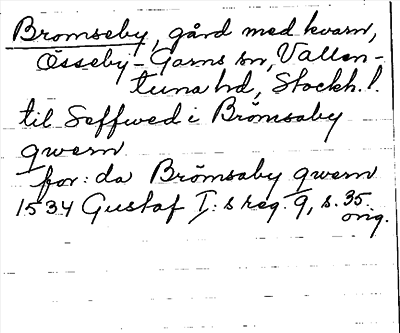 Bromseby, gård med kvarn,
Össeby-Garns sn, Vallen-
tuna hd, Stockh. l.
til Seffwed i Brömsaby
qwern
for: da Brömsaby qwern
1534 Gustaf I:s reg. 9, s. 35
orig.